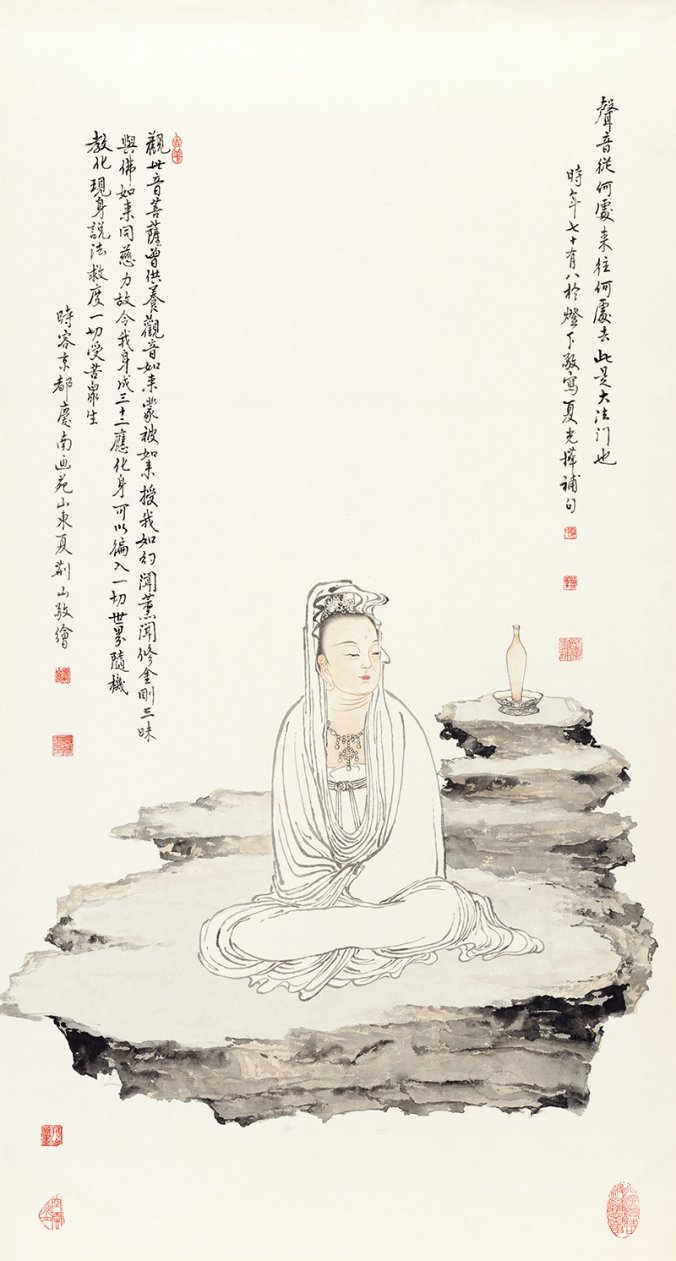 聲音從何處来往何處去此是大法门也
時年七十有八於燈下敬寫夏光補句
觀世音菩薩曾供養觀音如来蒙被如来授我如幻聞薰聞修金剛三昧
與佛如来同慈力故令我身成三十二應化身可以徧入一切世界隨機
教化現身說法救度一切受苦眾生
時客京都慶南画苑山東夏荆山敬繪